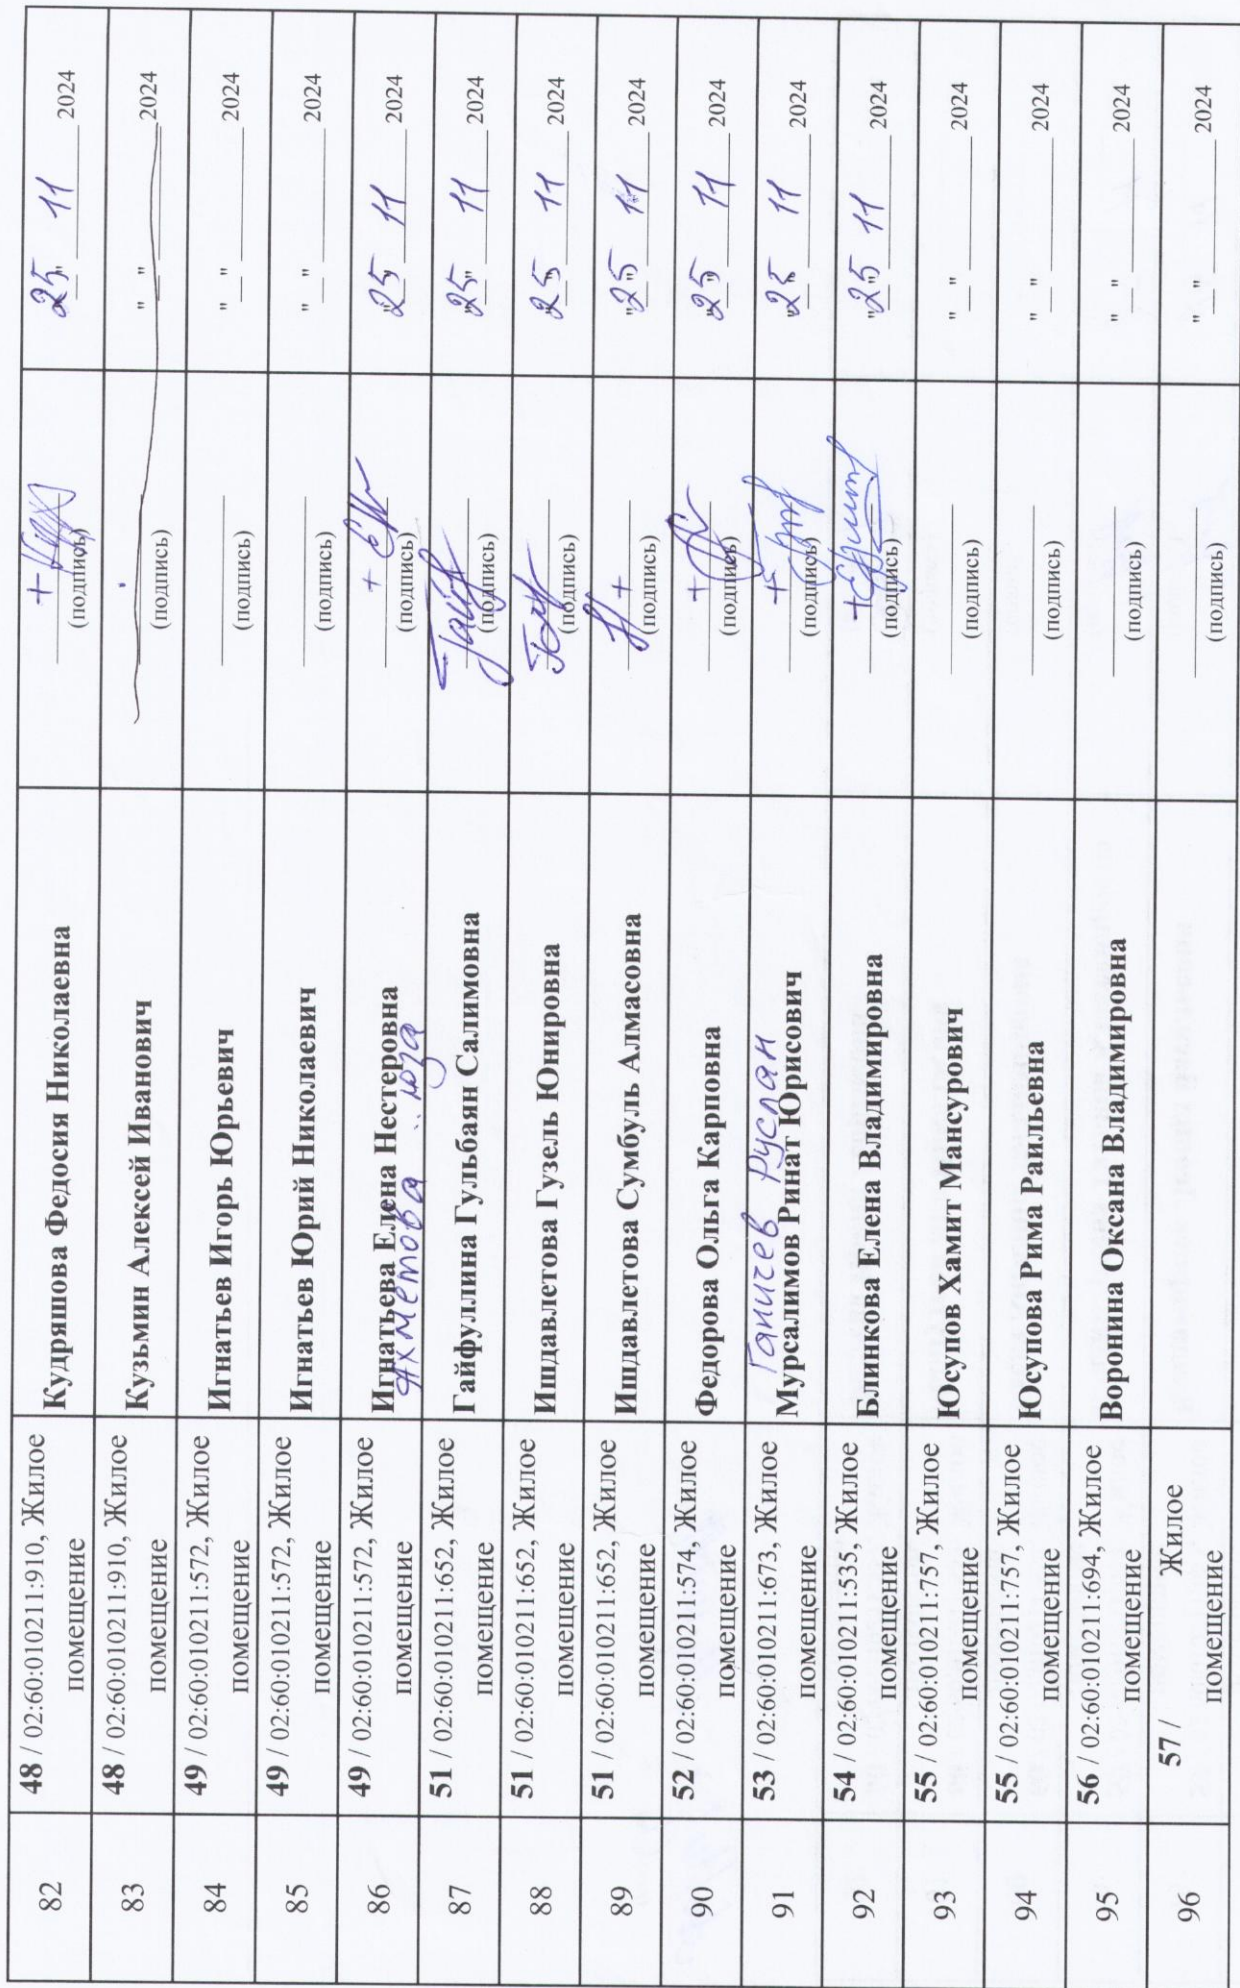 82 48 / 02:60:010211:910, Жилое помещение Кудряшова Федосия Николаевна + (подпись) "25" 11 2024
83 48 / 02:60:010211:910, Жилое помещение Кузьмин Алексей Иванович (подпись) "__" 2024
84 49 / 02:60:010211:572, Жилое помещение Игнатьев Игорь Юрьевич (подпись) "__" 2024
85 49 / 02:60:010211:572, Жилое помещение Игнатьев Юрий Николаевич (подпись) "__" 2024
86 49 / 02:60:010211:572, Жилое помещение Игнатьева Елена Нестеровна + (подпись) "25" 11 2024
Ахметова
87 51 / 02:60:010211:652, Жилое помещение Гайфуллина Гульбаян Салимовна (подпись) "25" 11 2024
88 51 / 02:60:010211:652, Жилое помещение Ишдавлетова Гузель Юнировна (подпись) "25" 11 2024
89 51 / 02:60:010211:652, Жилое помещение Ишдавлетова Сумбуль Алмасовна + (подпись) "25" 11 2024
90 52 / 02:60:010211:574, Жилое помещение Федорова Ольга Карповна + (подпись) "25" 11 2024
Ганичев Руслан
91 53 / 02:60:010211:673, Жилое помещение Мурсалимов Ринат Юрисович + (подпись) "25" 11 2024
92 54 / 02:60:010211:535, Жилое помещение Блинкова Елена Владимировна + (подпись) "25" 11 2024
93 55 / 02:60:010211:757, Жилое помещение Юсупов Хамит Мансурович (подпись) "__" 2024
94 55 / 02:60:010211:757, Жилое помещение Юсупова Рима Раильевна (подпись) "__" 2024
95 56 / 02:60:010211:694, Жилое помещение Воронина Оксана Владимировна (подпись) "__" 2024
96 57 / Жилое помещение (подпись) "__" 2024